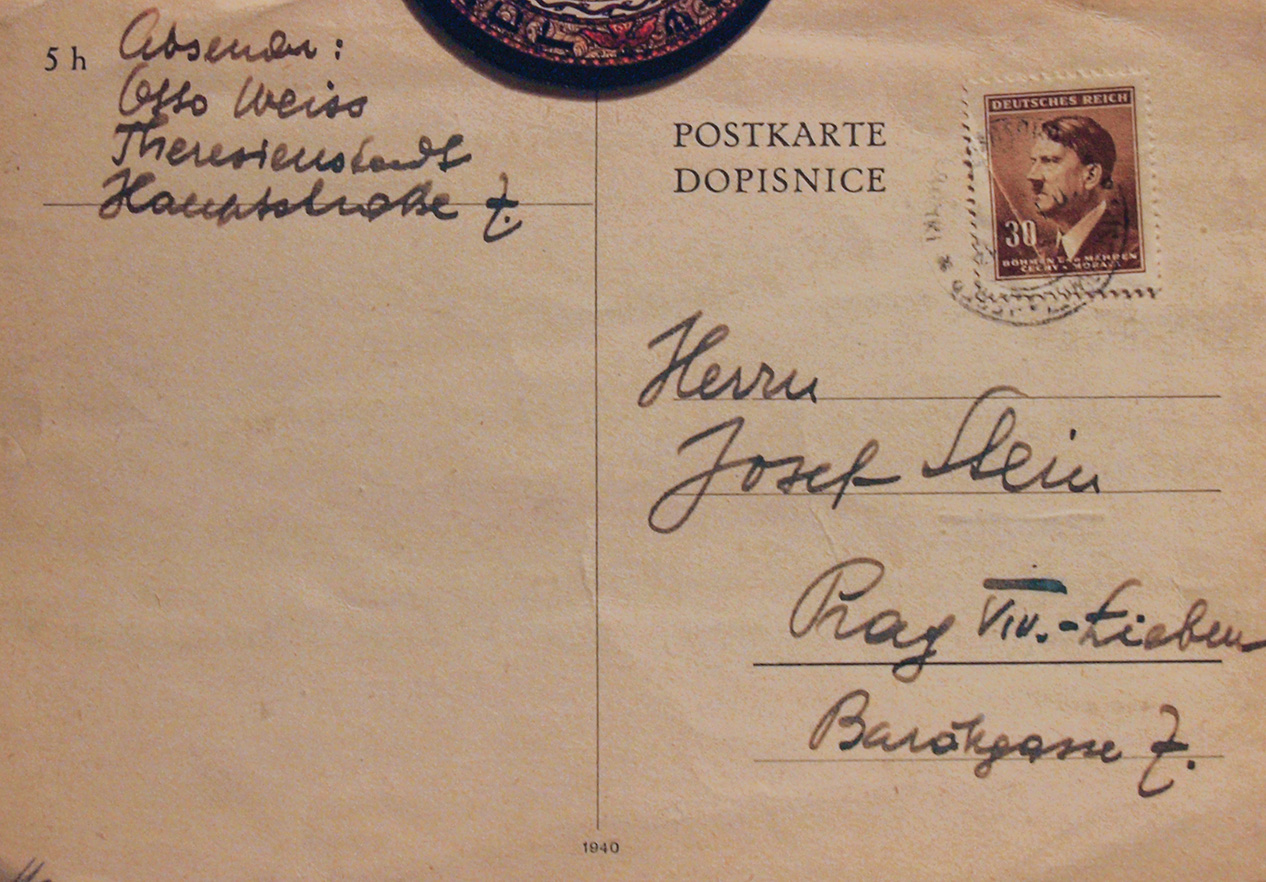 5 h
Absender:
Otto Weiss
Theresienstadt
Hauptstraße 7.
POSTKARTE
DOPISNICE
DEUTSCHES REICH
30
BÖHMEN U. MÄHREN
ČECHY A MORAVA
Herrn
Josef Stein
Prag VIII.-Lieben
Barákgasse 7.
1940